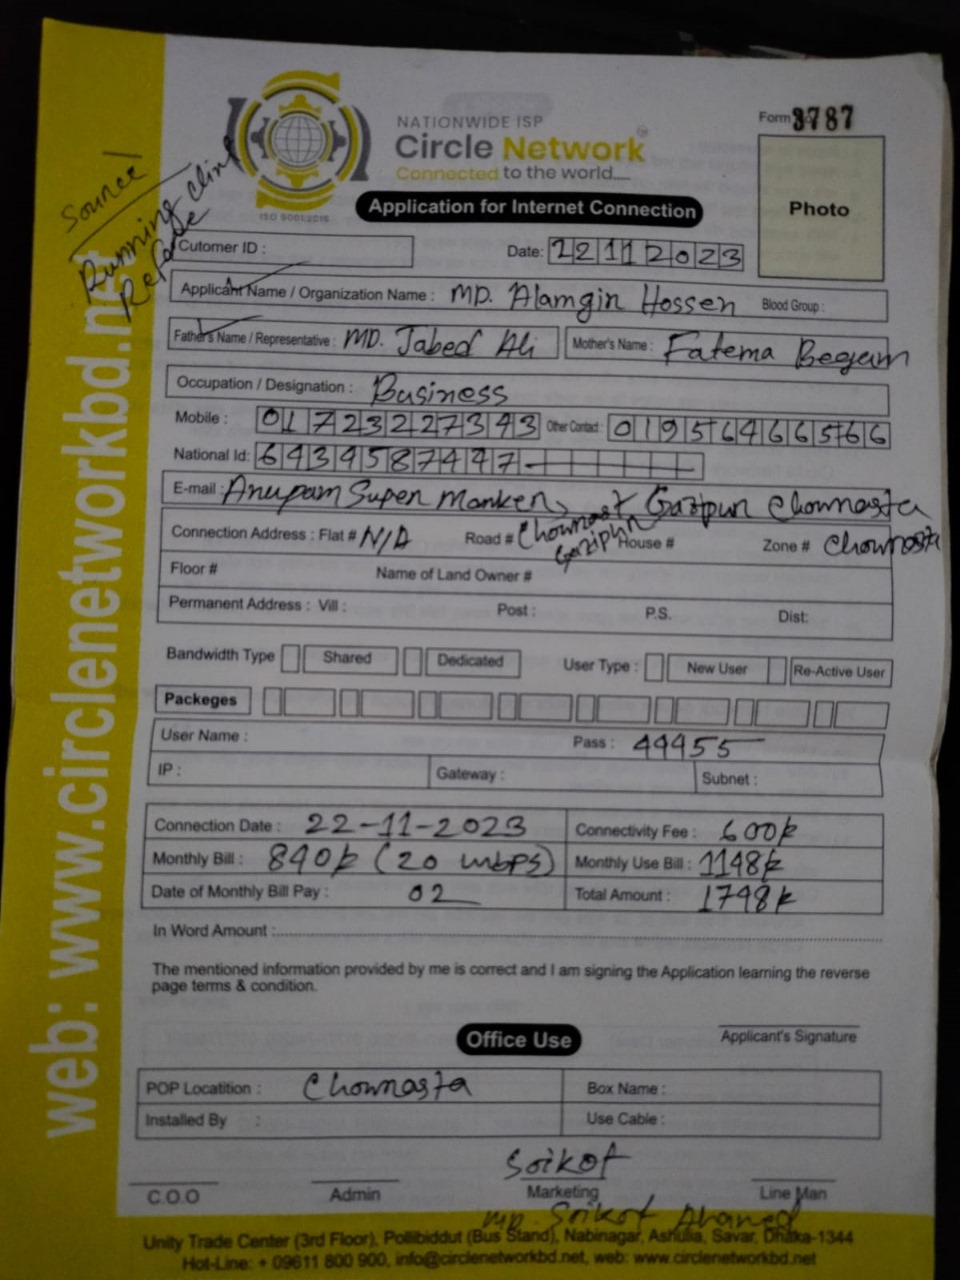 Form 3787
NATIONWIDE ISP
Circle Network
Connected to the world....
ISO 9001:2015
Application for Internet Connection
Photo
Source/
Running Clint
Refarse
Cutomer ID :
Date: 22112023
Applicant Name / Organization Name : MD. Alamgin Hossen Blood Group :
Father's Name / Representative : MD. Jabed Ali Mother's Name : Fatema Begam
Occupation / Designation : Business
Mobile : 01723227343 Other Contact : 01956466566
National Id: 6434587447
E-mail : Anupam Super Manken, Gazipur Chownasta
Connection Address : Flat # N/A Road # Chownast Gaziphn House # Zone # Chownasta
Floor # Name of Land Owner #
Permanent Address : Vill : Post : P.S. Dist:
Bandwidth Type Shared Dedicated User Type : New User Re-Active User
Packeges
User Name : Pass : 44455
IP : Gateway : Subnet :
Connection Date : 22-11-2023 Connectivity Fee : 600k
Monthly Bill : 840k (20 mbps) Monthly Use Bill : 1148k
Date of Monthly Bill Pay : 02 Total Amount : 1748k
In Word Amount :
The mentioned information provided by me is correct and I am signing the Application learning the reverse
page terms & condition.
Applicant's Signature
Office Use
POP Locatition : Chownasta Box Name :
Installed By : Use Cable :
Soikot
C.O.O Admin Marketing Line Man
MD. Soikot Ahamed
Unity Trade Center (3rd Floor), Pollibiddut (Bus Stand), Nabinagar, Ashulia, Savar, Dhaka-1344
Hot-Line: + 09611 800 900, info@circlenetworkbd.net, web: www.circlenetworkbd.net
web: www.circlenetworkbd.net